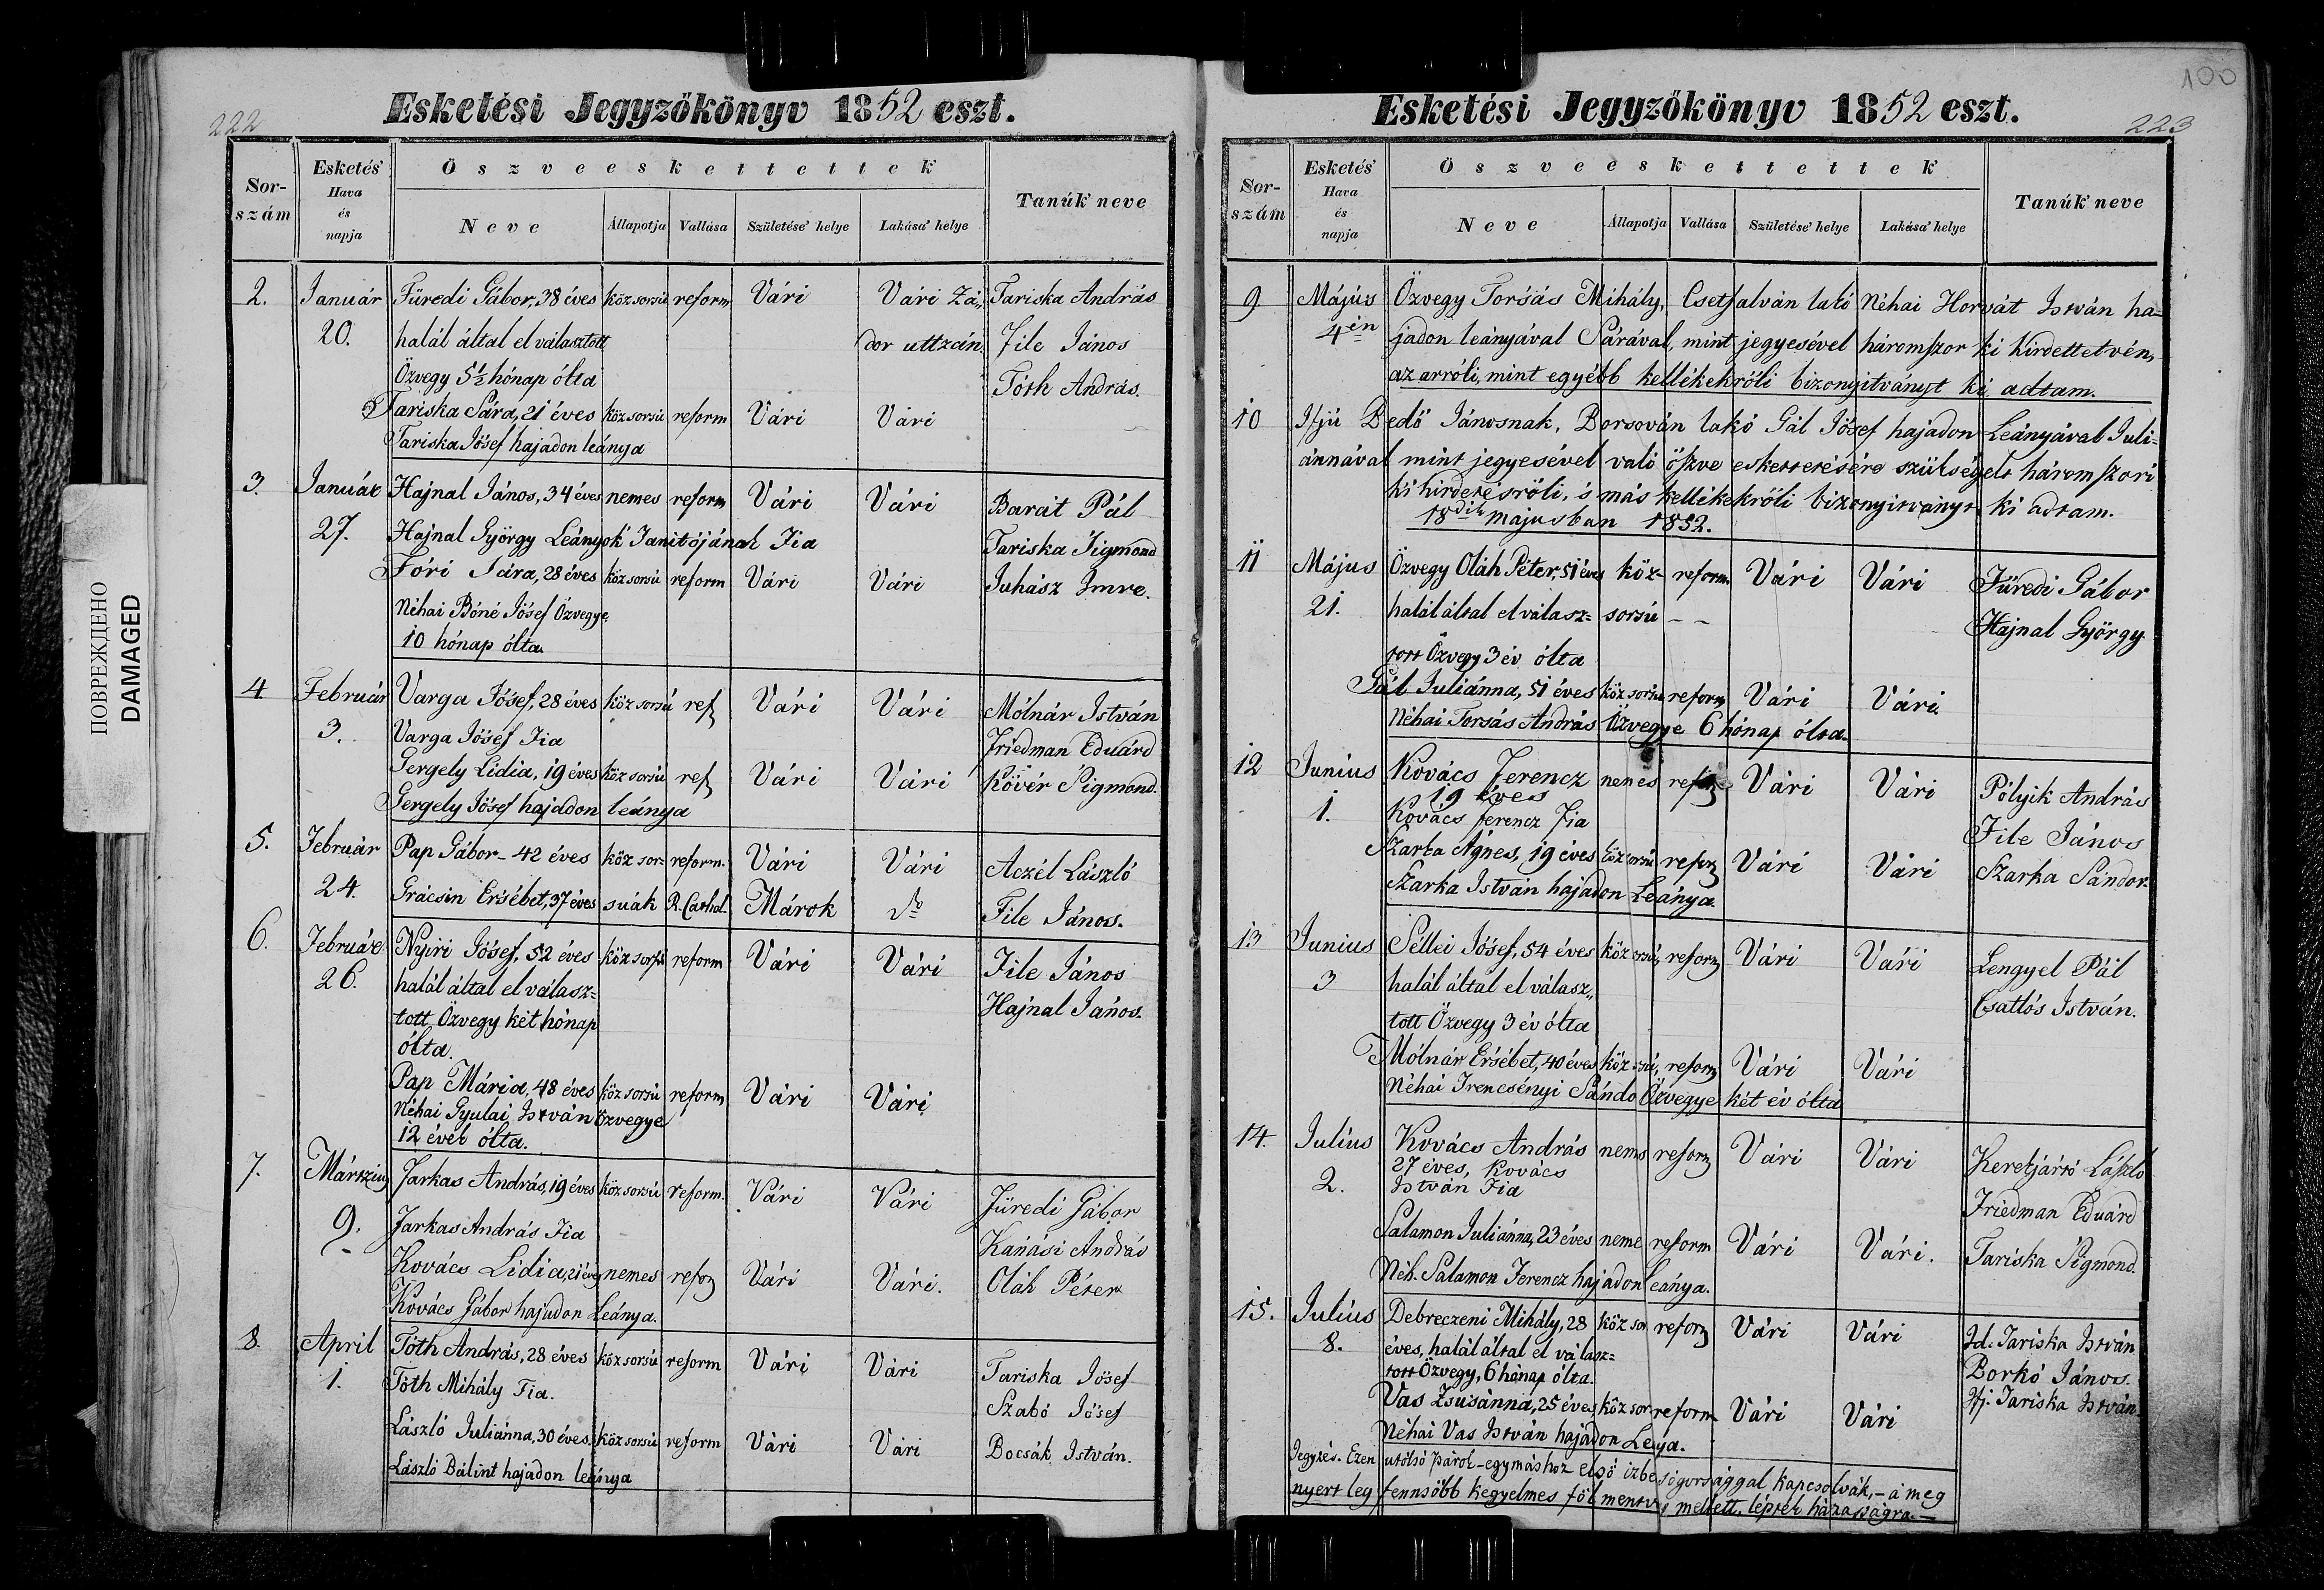 222
Esketési Jegyzőkönyv 1852 eszt.
Sor-szám | Esketés' Hava és napja | Öszveeskettettek | Tanúk' neve
Neve | Állapotja | Vallása | Születése' helye | Lakása' helye
2. | Január | Füredi Gábor, 38 éves | köz sorsú | reform | Vári | Vári Zá„ | Tariska András
20. | halál által el választott | dor uttzán. | File János
Özvegy 5½ hónap ólta | Tóth András.
Tariska Sára, 21 éves | köz sorsú | reform | Vári | Vári
Tariska Jósef hajadon leánya
3. | Január | Hajnal János, 34 éves | nemes | reform | Vári | Vári | Barát Pál
27. | Hajnal György Leányok Tanitójának Fia | Tariska Sigmond
Fóri Sára, 28 éves | köz sorsú | reform | Vári | Vári | Juhász Imre.
Néhai Bóné Jósef Özvegye,
10 hónap ólta.
4 | Február | Varga Jósef, 28 éves | köz sorsú | ref | Vári | Vári | Mólnár István
3. | Varga Jósef Fia | Friedman Eduárd
Gergely Lidia, 19 éves | köz sorsú | ref | Vári | Vári | Kövér Sigmond.
Gergely Jósef hajadon leánya
5. | Február | Pap Gábor - 42 éves | köz sor= | reform. | Vári | Vári | Aczél László
24. | Grácsin Ersébet, 37 éves | suák | R. Cathol. | Márok | do | File János.
6. | Február | Nyiri Jósef, 52 éves | köz sorsú | reform | Vári | Vári | File János
26. | halál által el válasz= | Hajnal János.
tott Özvegy két hónap
ólta.
Pap Mária, 48 éves | köz sorsú | reform | Vári | Vári
Néhai Gyulai István Özvegye
12 évek ólta.
7. | Mártzius | Farkas András, 19 éves | köz sorsú | reform. | Vári | Vári | Füredi Gábor
9. | Farkas András Fia | Kanási András
Kovács Lidia, 21 éves | nemes | refor | Vári | Vári. | Oláh Péter
Kovács Gábor hajadon Leánya.
8. | April | Tóth András, 28 éves | köz sorsú | reform | Vári | Vári | Tariska Jósef
1. | Tóth Mihály Fia. | Szabó Jósef
László Juliánna, 30 éves | köz sorsú | reform | Vári | Vári | Bocsák István.
László Bálint hajadon leánya
ПОВРЕЖДЕНО
DAMAGED
100
223
Esketési Jegyzőkönyv 1852 eszt.
Sor-szám | Esketés' Hava és napja | Öszveeskettettek | Tanúk' neve
Neve | Állapotja | Vallása | Születése' helye | Lakása' helye
9 | Május | Özvegy Forsás Mihály, Csetfalván lakó Néhai Horvát István ha=
4én | jadon leányával Sárával, mint jegyesével háromszor ki hirdettetvén,
az arróli, mint egyébb kellékekröli bizonyitványt ki adtam.
10 | Ifjú Bedő Jánosnak, Borsován lakó Gál Jósef hajadon Leányával Juli=
ánnával mint jegyesével való öszve eskettetésére szükséges háromszori
ki hirdetésröli, s más kellékekröli bizonyitványt ki adtam.
18dik májusban 1852.
11 | Május | Özvegy Oláh Péter, 51 éves | köz- | reform. | Vári | Vári | Füredi Gábor
21. | halál által el válasz= | sorsú | - - | Hajnal György
tott Özvegy 3 év ólta
Gál Juliánna, 51 éves | köz sorsú | reform | Vári | Vári
Néhai Forsás András Özvegye 6 hónap ólta.
12 | Junius | Kovács Ferencz | nemes | refor | Vári | Vári | Pólyik András
19 éves
1. | Kovács Ferencz Fia | File János
Szarka Ágnes, 19 éves | köz sorsú | refor | Vári | Vári | Szarka Sándor.
Szarka István hajadon Leánya.
13 | Junius | Séllei Jósef, 54 éves | köz sorsú | reform | Vári | Vári | Lengyel Pál
3 | halál által el válasz„ | Csatlós István.
tott Özvegy 3 év ólta
Mólnár Ersébet, 40 éves | köz sorsú | reform | Vári | Vári
Néhai Trencsényi Sándo Özvegye két év ólta
14. | Julius | Kovács András | nems | reform | Vári | Vári | Keretjártó László
27 éves, Kovács
2. | István Fia | Friedman Eduárd
Salamon Juliánna, 23 éves | neme | reform | Vári | Vári. | Tariska Sigmond.
Néh. Salamon Ferencz hajadon leánya.
15. | Julius | Debreczeni Mihály, 28 | köz sor | refor | Vári | Vári | Id. Tariska István
8. | éves, halál által el válasz= | Borkó János.
tott Özvegy, 6 hónap ólta. | Ifj. Tariska István
Vas Zsusánna, 25 éves, | köz sor | reform | Vári | Vári
Néhai Vas István hajadon Leya.
Jegyzés. Ezen utólsó párok - egymáshoz első izbe sógorsággal kapcsolvák, - a meg
nyert leg fennsőbb kegyelmes fölmentvy mellett, léptek házasságra. -